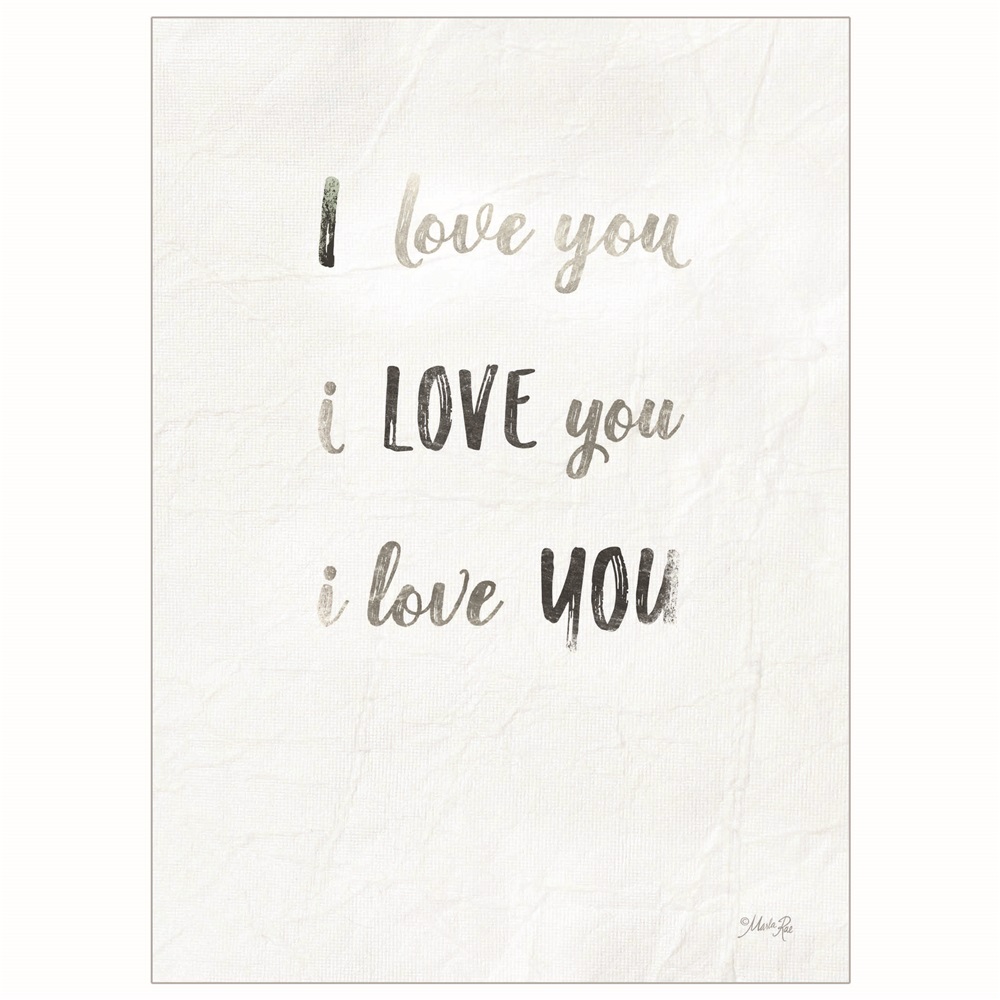 I love you
i LOVE you
i love YOU
©Marla Rae